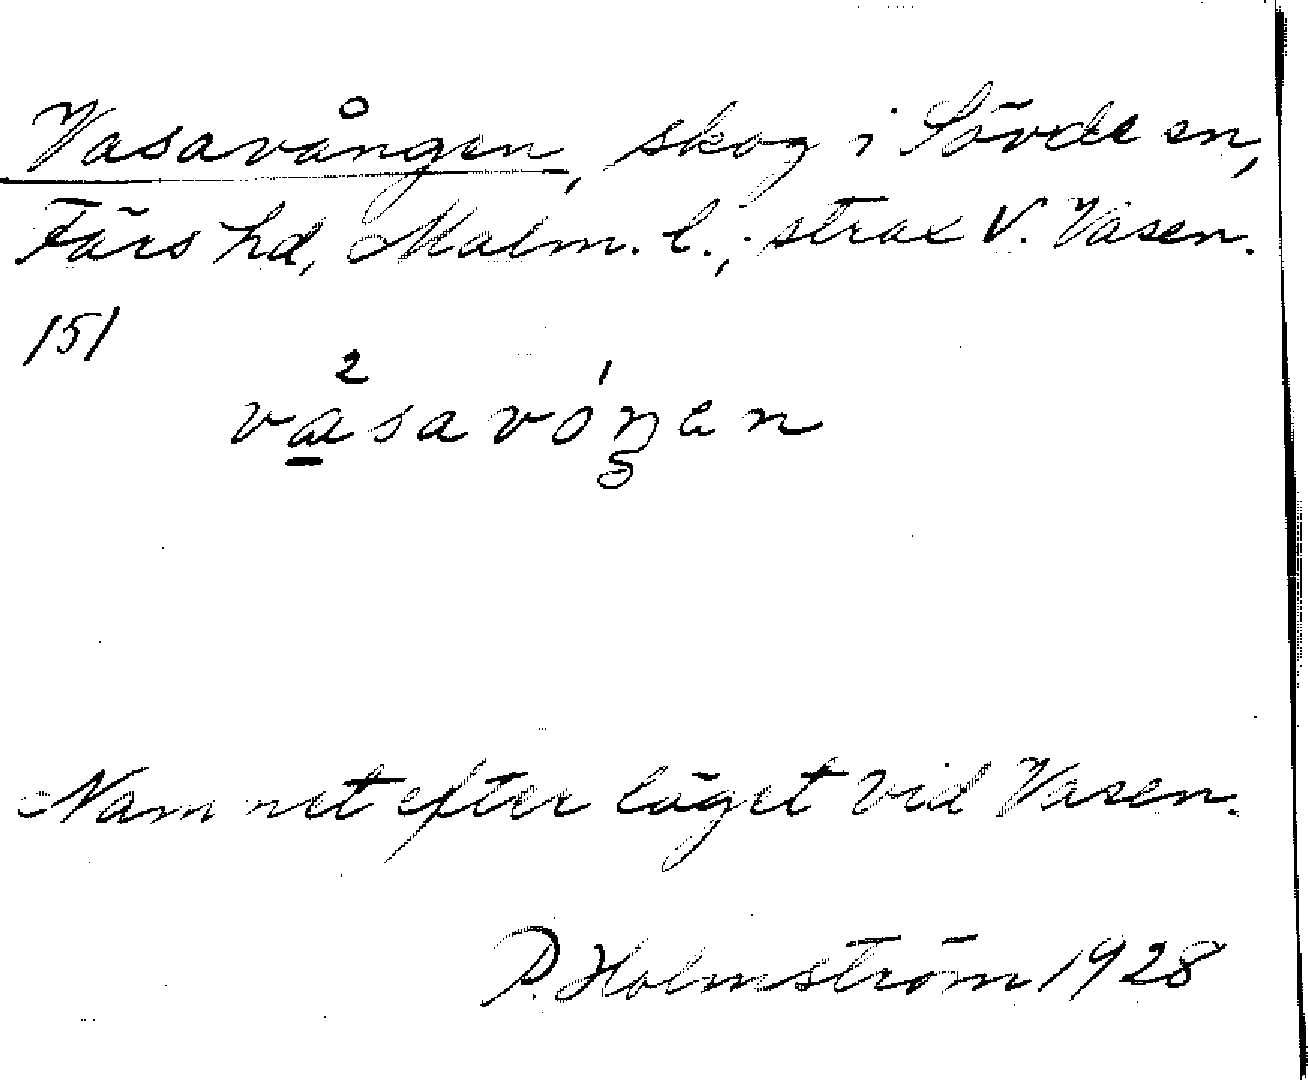 Vasavången, skog i Sövde sn,
Färs hd, Malm. l., strax V. Vasen.
151
vasavóŋen
Namnet efter läget vid Vasen.
P. Holmström 1928